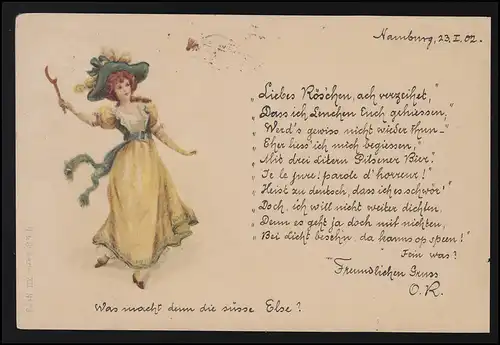 Hamburg, 23.I.02.
"Liebes Röschen, ach verzeihet,"
"Dass ich Lenchen Euch geheissen,"
"Werd's gewiss nicht wieder thun -"
"Eher liess ich mich begiessen,"
"Mit drei Litern Pilsener Bier."
"Je le jure! parole d'horreur!"
"Heist zu deutsch, dass ich es schwör'"
"Doch, ich will nicht weiter dichten,
"Denn es geht ja doch mit nichten,
"Bei Licht beseh'n, da kanns op speen!"
Fein was?
Freundlichen Gruss
O.R.
Was macht denn die süsse Else?